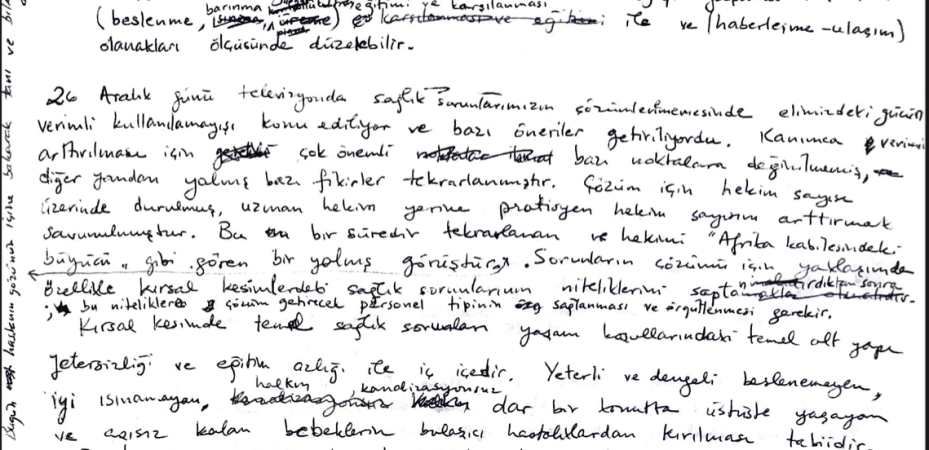 barınma eğitimi ve karşılanması
(beslenme, ile ve (haberleşme-ulaşım)
olanakları ölçüsünde düzelebilir.
26 Aralık günü televizyonda sağlık sorunlarımızın çözümlenmemesinde elimizdeki gücün
verimli kullanılamayışı konu ediliyor ve bazı öneriler getiriliyordu. Kanımca verimi
arttırılması için çok önemli bazı noktalara değinilmemiş,
diğer yandan yalnış bazı fikirler tekrarlanmıştır. Çözüm için hekim sayısı
üzerinde durulmuş, uzman hekim yerine pratisyen hekim sayısını arttırmak
savunulmuştur. Bu bir süredir tekrarlanan ve hekimi "Afrika kabilesindeki
büyücü" gibi gören bir yalnış görüştür. Sorunların çözümü için yaklaşımda
özellikle kırsal kesimlerdeki sağlık sorunlarının niteliklerini saptandıktan sonra
bu niteliklere çözüm getirecek personel tipinin saptanması ve örgütlenmesi gerekir.
Kırsal kesimde temel sağlık sorunları yaşam koşullarındaki temel alt yapı
yetersizliği ve eğitim azlığı ile iç içedir. Yeterli ve dengeli beslenemeyen,
halkın kanalizasyonsuz
iyi ısınamayan, dar bir konutta üstüste yaşayan
ve aşısız kalan bebeklerin bulaşıcı hastalıklardan kırılması tabiidir.
haskının gözünüz içine bakarak ve